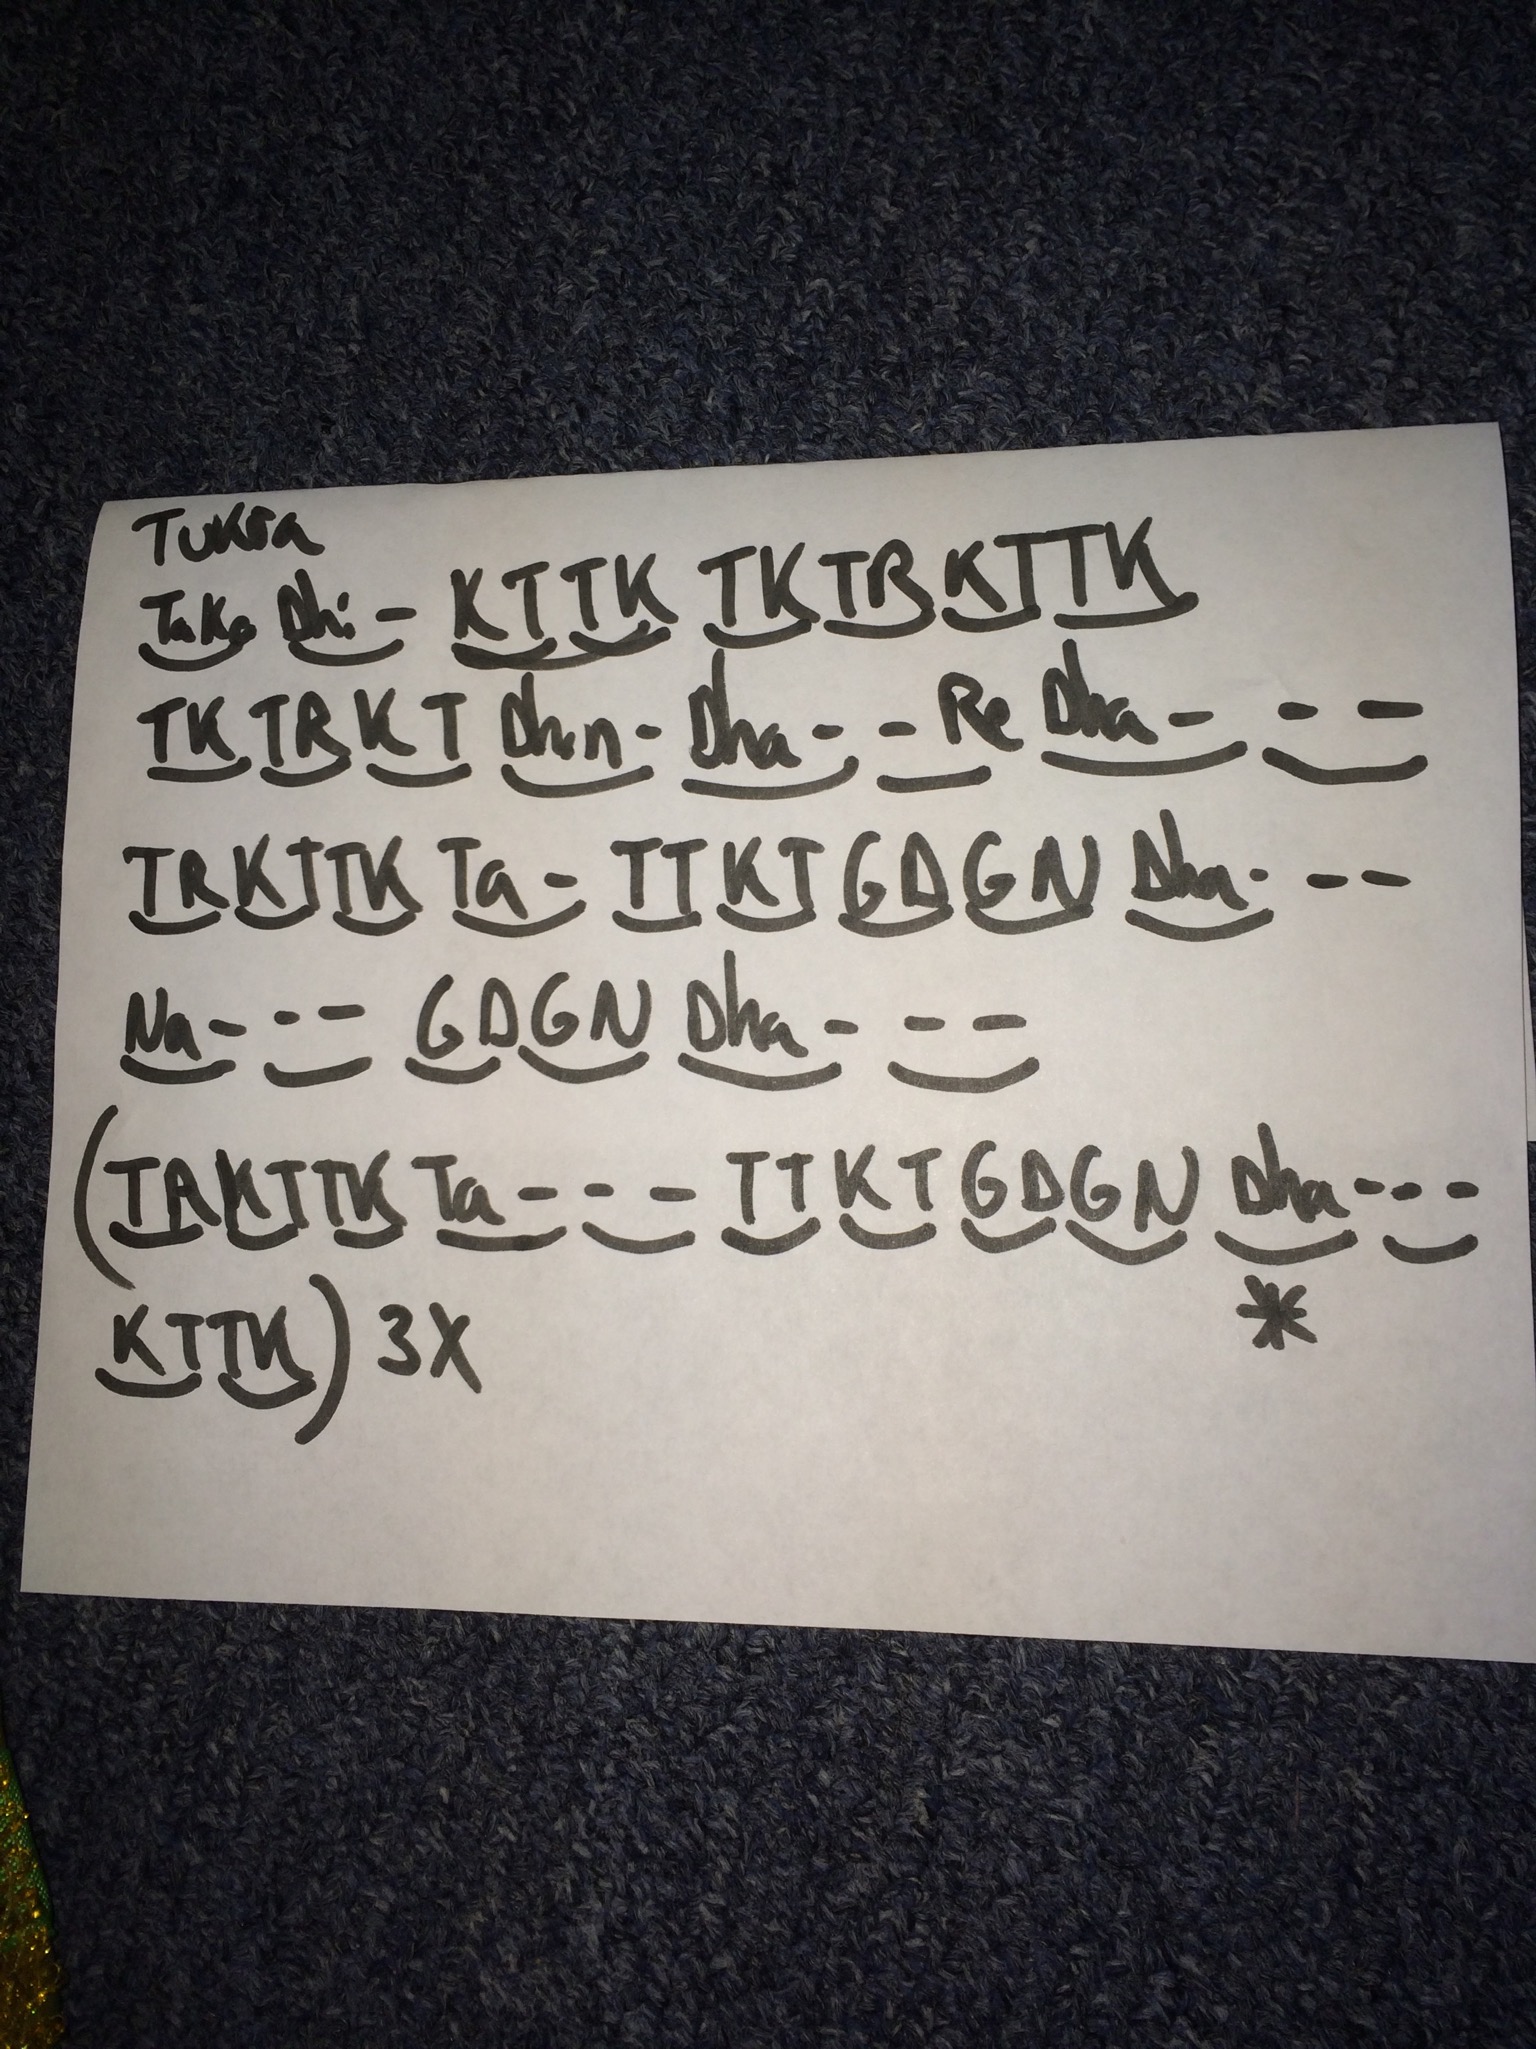 Tukra
Taka Dhi - KTTK TKTRKTTK
TKTRKT Dhin - Dha - - Re Dha - - -
TRKTTK Ta - TTKTGDGN Dha - - -
Na - - - GDGN Dha - - -
(TRKTTK Ta - - - TTKTGDGN Dha - - -
*
KTTK) 3X